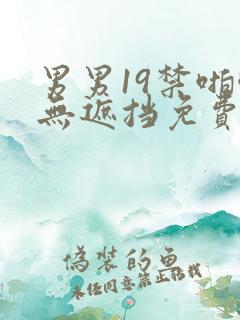 男男19禁啪
無遮挡免費
偽裝的魚
未经同意禁止转载